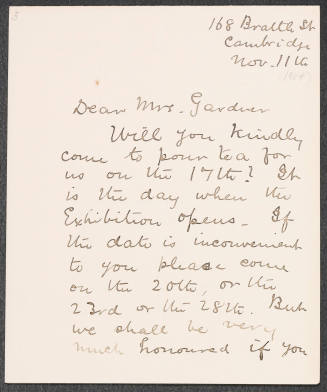 168 Brattle St
Cambridge
Nov. 11th
Dear Mrs. Gardner
Will you kindly
come to pour tea for
us on the 17th? It
is the day when the
Exhibition opens - If
the date is inconvenient
to you please come
on the 20th, or the
23rd or the 28th. But
we shall be very
much honoured if you